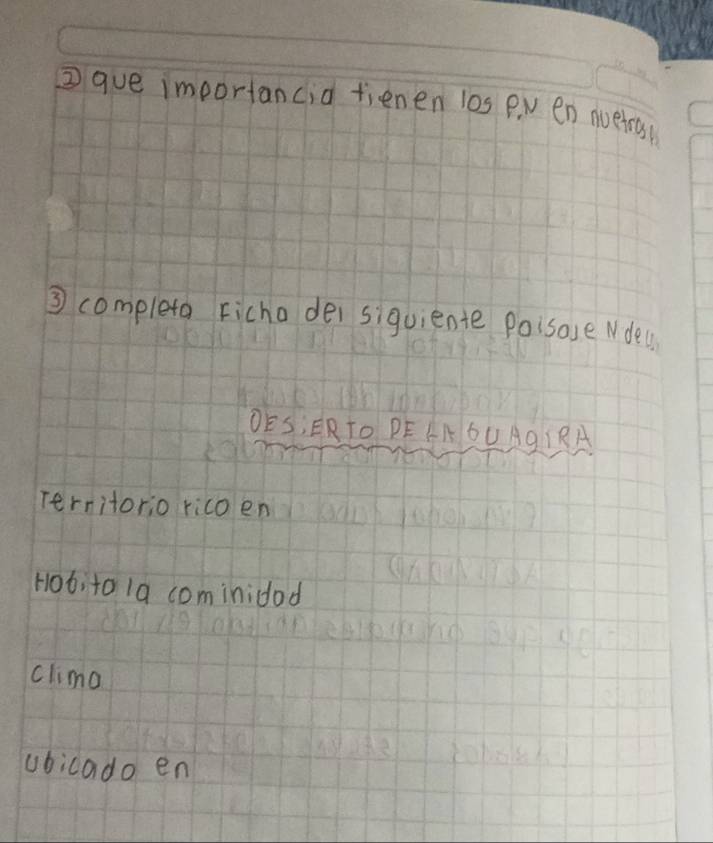 ② que importancia tienen los P.N en nuetros
③ completa Ficha del siguiente Paisaje N de
DESiERTO DE LA GUAgiRA
Territorio rico en
Habita la cominidad
clima
ubicado en